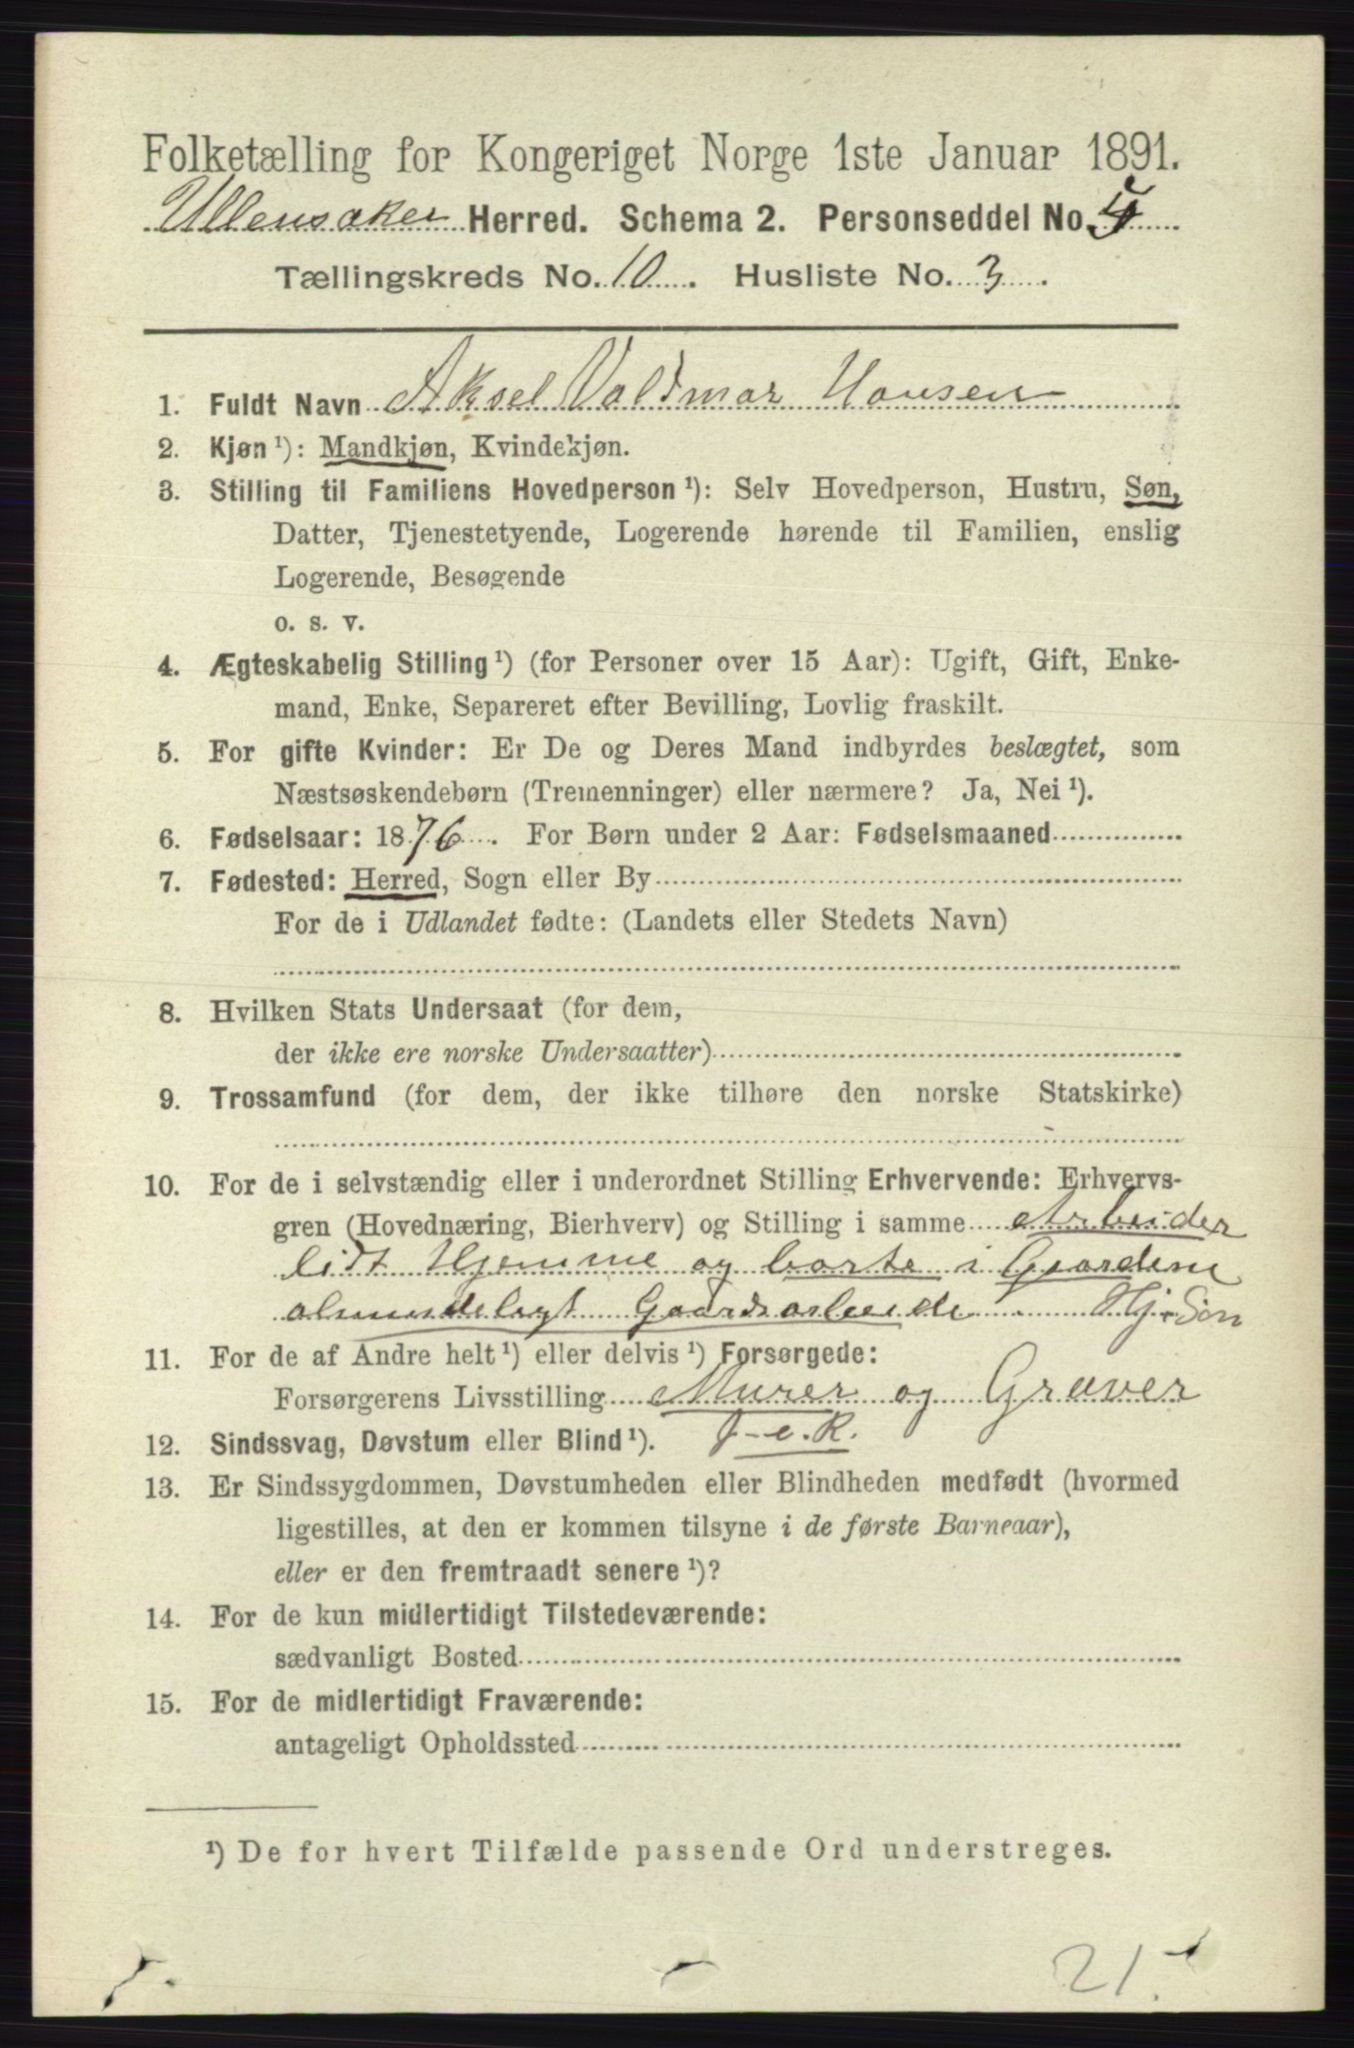 Folketælling for Kongeriget Norge 1ste Januar 1891.
Ullensaker Herred. Schema 2. Personseddel No. 5
Tællingskreds No. 10. Husliste No. 3.
1. Fuldt Navn Aksel Valdmar Hansen
2. Kjøn ¹): Mandkjøn, Kvindekjøn.
3. Stilling til Familiens Hovedperson ¹): Selv Hovedperson, Hustru, Søn,
Datter, Tjenestetyende, Logerende hørende til Familien, enslig
Logerende, Besøgende
o. s. v.
4. Ægteskabelig Stilling ¹) (for Personer over 15 Aar): Ugift, Gift, Enke-
mand, Enke, Separeret efter Bevilling, Lovlig fraskilt.
5. For gifte Kvinder: Er De og Deres Mand indbyrdes beslægtet, som
Næstsøskendebørn (Tremenninger) eller nærmere? Ja, Nei ¹).
6. Fødselsaar: 1876. For Børn under 2 Aar: Fødselsmaaned
7. Fødested: Herred, Sogn eller By
For de i Udlandet fødte: (Landets eller Stedets Navn)
8. Hvilken Stats Undersaat (for dem,
der ikke ere norske Undersaatter)
9. Trossamfund (for dem, der ikke tilhøre den norske Statskirke)
10. For de i selvstændig eller i underordnet Stilling Erhvervende: Erhvervs-
gren (Hovednæring, Bierhverv) og Stilling i samme Arbeider
lidt Hjemme og borte i Gaardene
almindeligt Gaardsarbeide. Hj. Søn
11. For de af Andre helt ¹) eller delvis ¹) Forsørgede:
Forsørgerens Livsstilling Murer og Graver
12. Sindssvag, Døvstum eller Blind ¹).
13. Er Sindssygdommen, Døvstumheden eller Blindheden medfødt (hvormed
ligestilles, at den er kommen tilsyne i de første Barneaar),
eller er den fremtraadt senere ¹)?
14. For de kun midlertidigt Tilstedeværende:
sædvanligt Bosted
15. For de midlertidigt Fraværende:
antageligt Opholdssted
¹) De for hvert Tilfælde passende Ord understreges.
21.